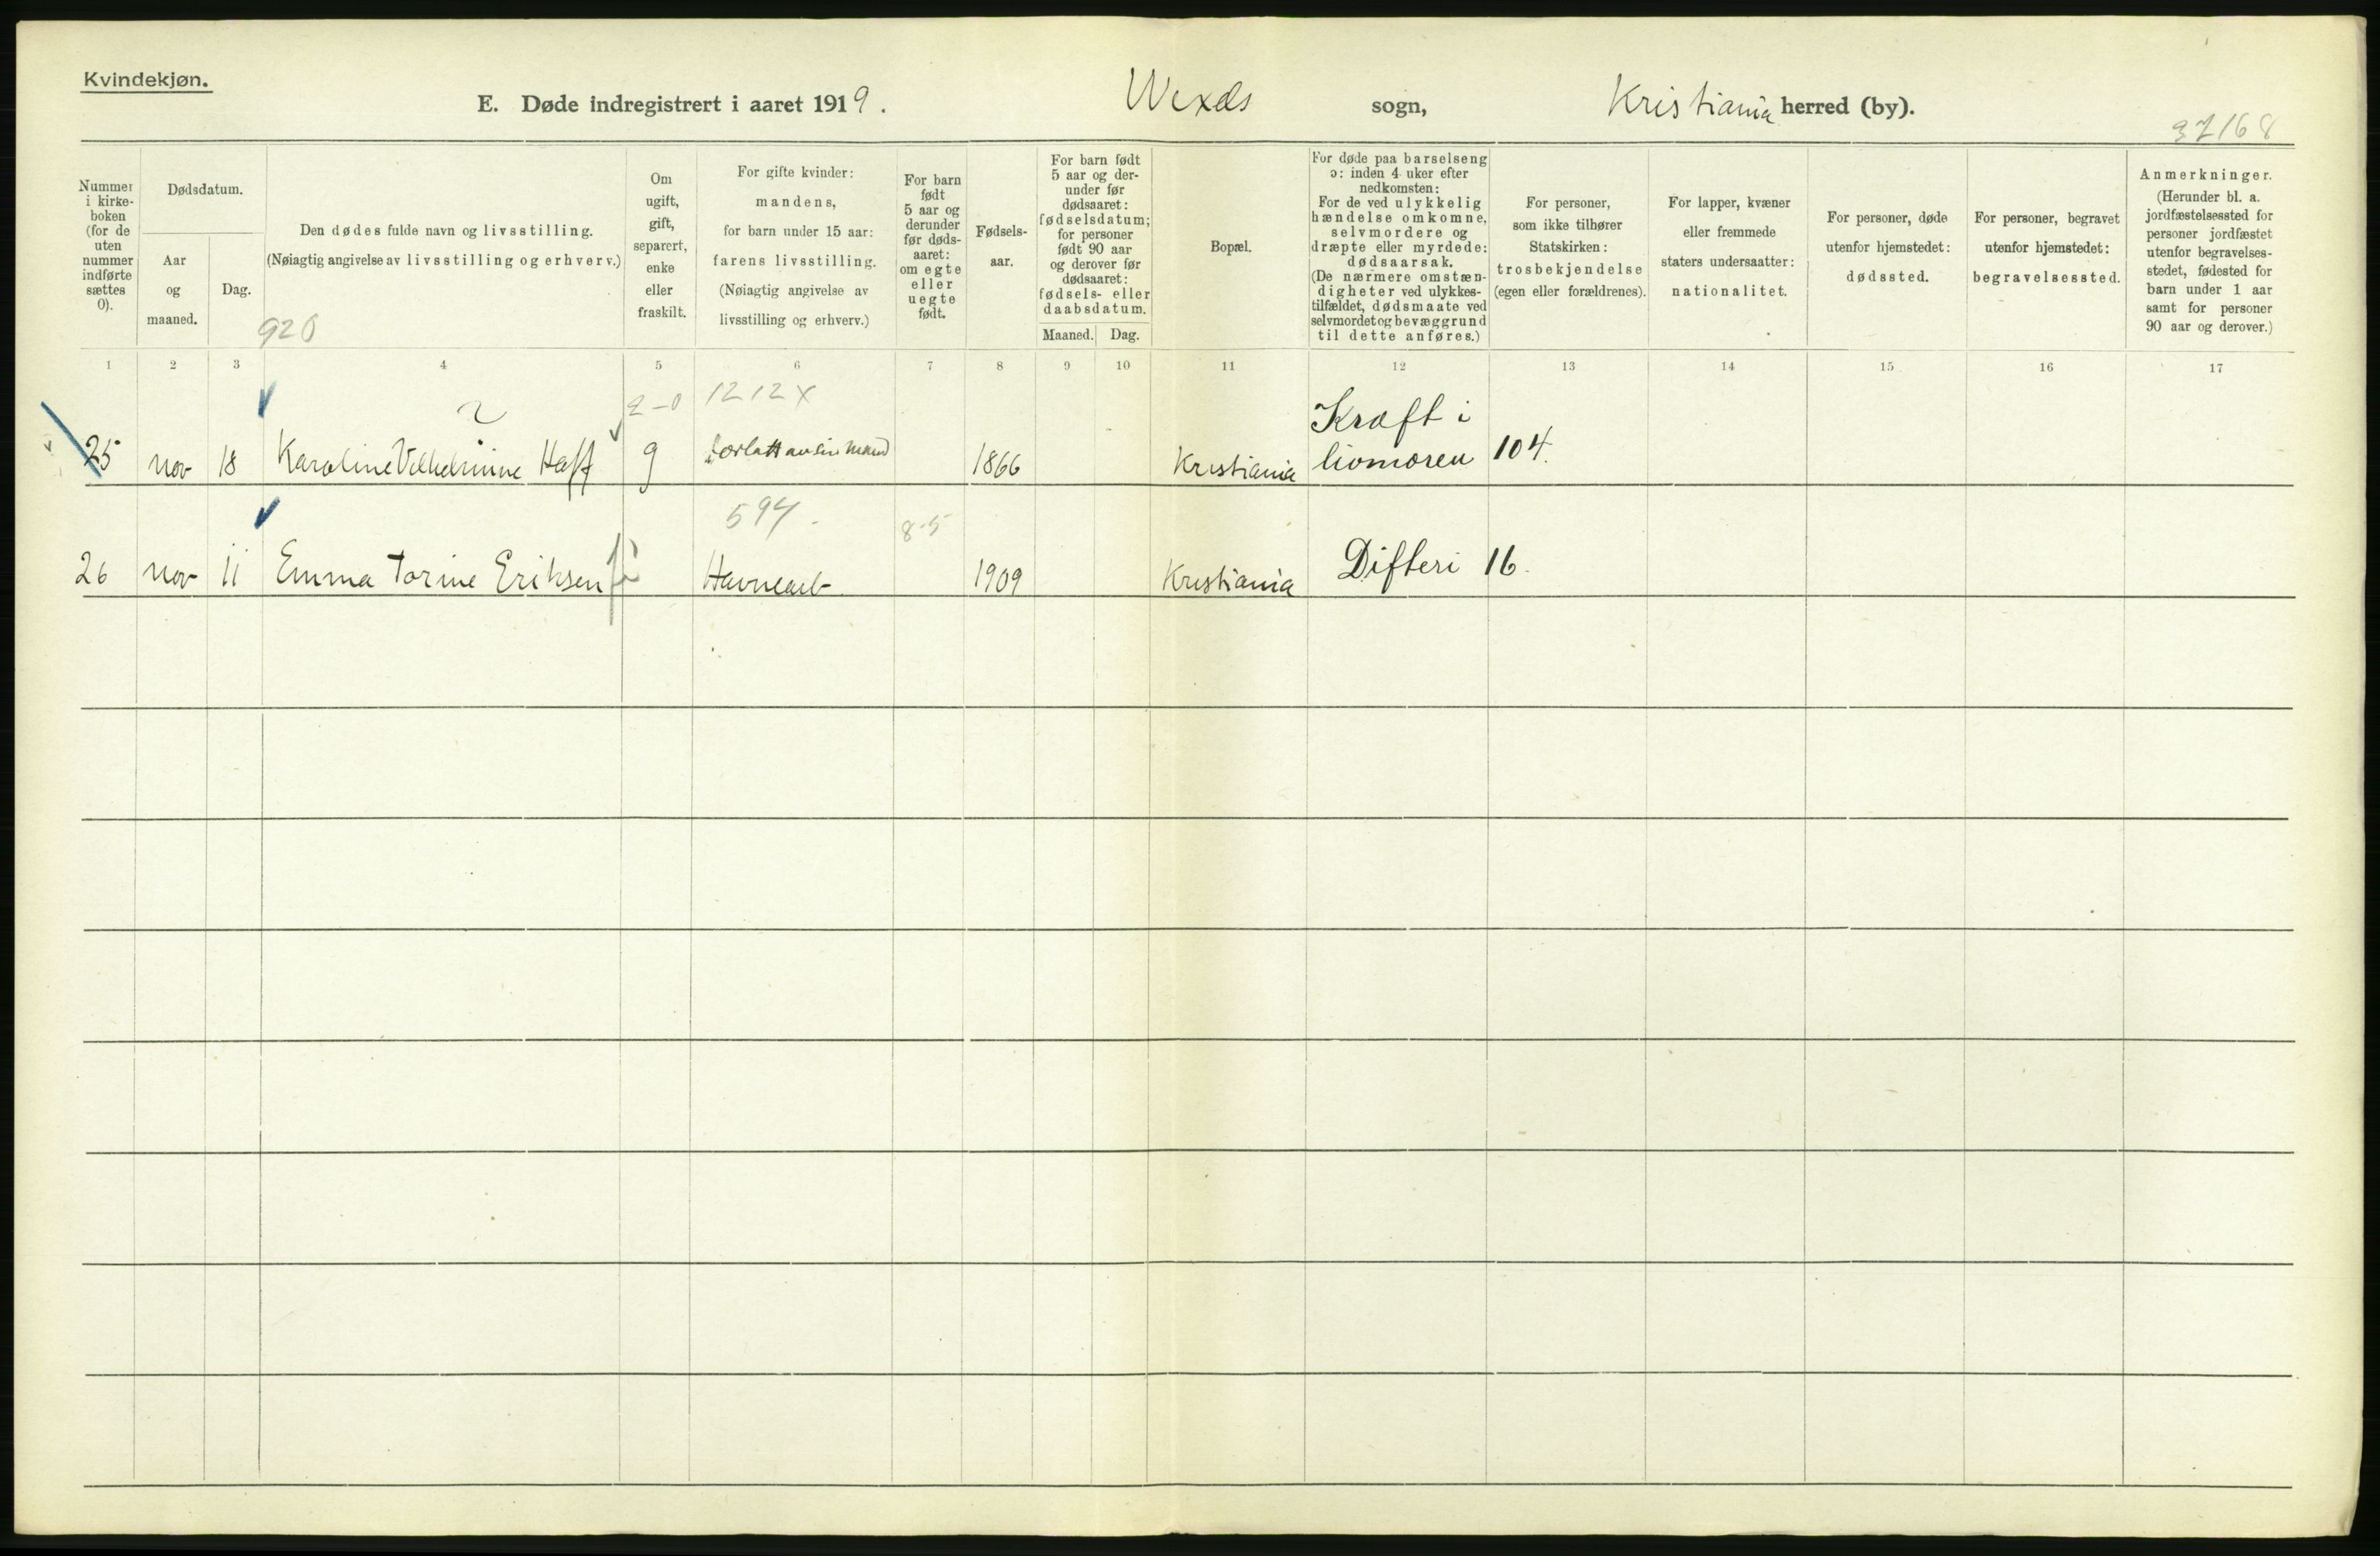 Kvindekjøn.
E. Døde indregistrert i aaret 1919. Wexels sogn, Kristiania herred (by).
37168
Nummer i kirke-boken (for de uten nummer indførte sættes 0).
Dødsdatum.
Aar og maaned.
Dag.
Den dødes fulde navn og livsstilling.
(Nøiagtig angivelse av livsstilling og erhverv.)
920
Om ugift, gift, separert, enke eller fraskilt.
For gifte kvinder: mandens, for barn under 15 aar: farens livsstilling. (Nøiagtig angivelse av livsstilling og erhverv.)
For barn født 5 aar og derunder før døds-aaret: om egte eller uegte født.
Fødsels-aar.
For barn født 5 aar og der-under før dødsaaret: fødselsdatum; for personer født 90 aar og derover før dødsaaret: fødsels- eller daabsdatum.
Maaned. Dag.
Bopæl.
For døde paa barselseng ɔ: inden 4 uker efter nedkomsten: For de ved ulykkelig hændelse omkomne, selvmordere og dræpte eller myrdede: dødsaarsak. (De nærmere omstæn-digheter ved ulykkes-tilfældet, dødsmaate ved selvmordet og bevæggrund til dette anføres.)
For personer, som ikke tilhører Statskirken: trosbekjendelse (egen eller forældrenes).
For lapper, kvæner eller fremmede staters undersaatter: nationalitet.
For personer, døde utenfor hjemstedet: dødssted.
For personer, begravet utenfor hjemstedet: begravelsessted.
Anmerkninger. (Herunder bl. a. jordfæstelsessted for personer jordfæstet utenfor begravelses-stedet, fødested for barn under 1 aar samt for personer 90 aar og derover.)
1 2 3 4 5 6 7 8 9 10 11 12 13 14 15 16 17
2-0 1212 X
25 nov 18 Karoline Vilhelmine Haff g forlatt av sin mand 1866 Kristiania Kræft i livmoren 104.
594. 8-5
26 nov 11 Emma Torine Eriksen Havnearb 1909 Kristiania Difteri 16.